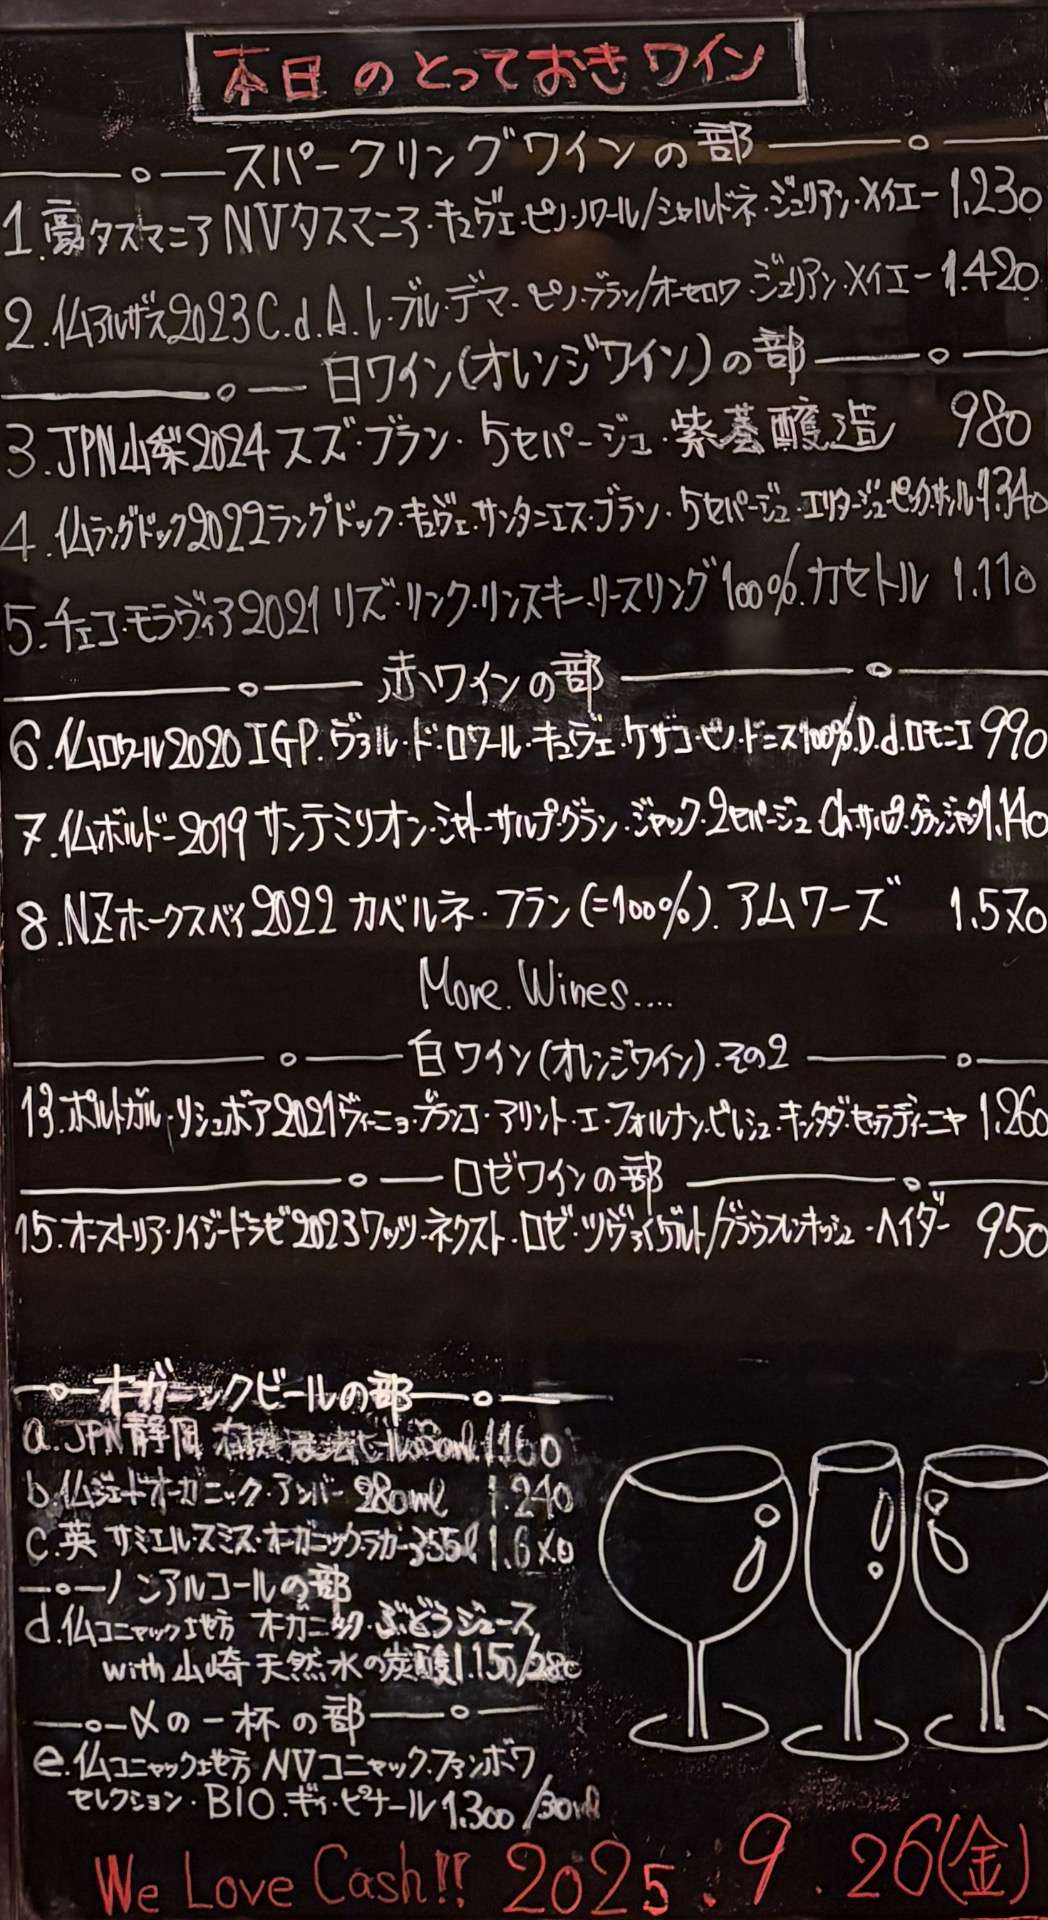 本日のとっておきワイン
スパークリングワインの部
1.豪タスマニア NVタスマニア・キュヴェ・ピノ・ノワール/シャルドネ・ジュリアン・メイエー 1.230
2.仏アルザス2023 C.d.A.ル・ブル・デマ・ピノ・ブラン/オーセロワ・ジュリアン・メイエー 1.420
白ワイン(オレンジワイン)の部
3.JPN山梨2024 スズ・ブラン・5セパージュ・紫葛醸造 980
4.仏ラングドック2022ラングドック・キュヴェ・サンタニエス・ブラン・5セパージュ・エリタージュ・ピック・サンル 1.340
5.チェコ・モラヴィア2021 リズ・リンク・リンスキー・リースリング100%.カセトル 1.110
赤ワインの部
6.仏ロワール2020 IGP.ヴァル・ド・ロワール・キュヴェ・ケザコ・ピノ・ドニス100%.D.d.ロモニエ 990
7.仏ボルドー2019 サンテミリオン・シャトー・サルプ・グラン・ジャック・2セパージュ Ch.サルプ・グランジャック 1.140
8.NZホークスベイ2022 カベルネ・フラン(=100%).アムワーズ 1.570
More.Wines....
白ワイン(オレンジワイン).その2
13.ポルトガル・リシュボア2021ヴィーニョ・ブランコ・アリント・エ・フォルナン・ピレシュ・キンタ・ダ・セッラディーニャ 1.260
ロゼワインの部
15.オーストリア・ノイジードラゼ2023ワッツ・ネクスト・ロゼ・ツヴァイゲルト/ブラウフレンキッシュ・ハイダー 950
オーガニックビールの部
a.JPN静岡 1.160
b.仏ジェード・オーガニック・アンバー 280ml 1.240
c.英 サミエル・スミス・オーガニックラガー355ml 1.6
ノンアルコールの部
d.仏コニャック地方 オーガニック・ぶどうジュース
with 山崎天然水の炭酸 1.150/280
〆の一杯の部
e.仏コニャック地方 NVコニャック・ファンボワ
セレクション・BIO.ギィ・ピナール 1.300/30ml
We Love Cash!! 2025.9.26(金)